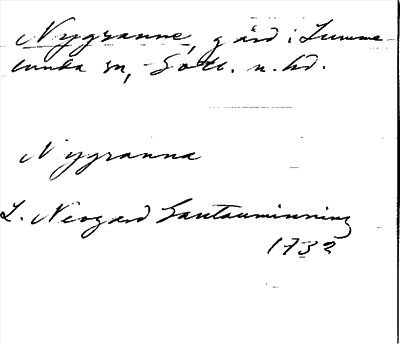 Nygranne, gård i Lumme-
lunda sn, Gotl. n. hd.
Nygranna
L. Neogard Gautauminning
1732